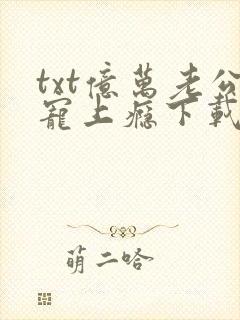 txt億萬老公
寵上癮下載
萌二哈